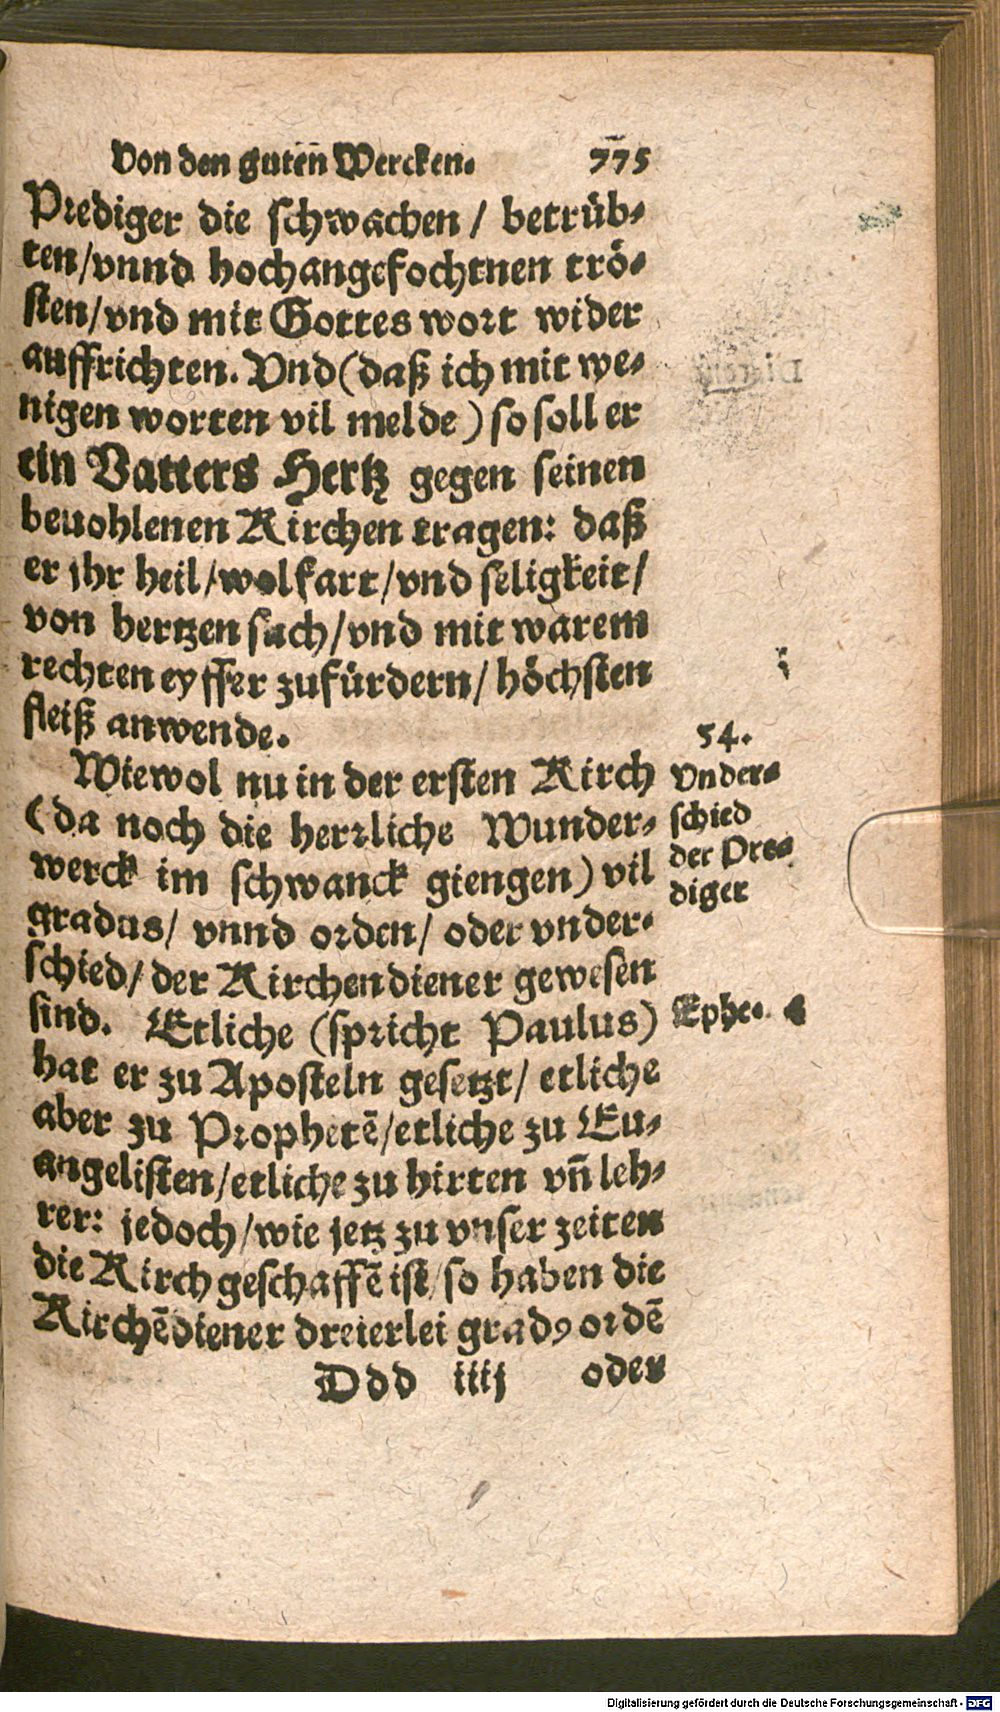 Von den gutēn Wercken. 775
Prediger die schwachen / betrüb⸗
ten/vnnd hochangefochtnen trö⸗
sten/vnd mit Gottes wort wider
auffrichten. Vnd (daß ich mit we⸗
nigen worten vil melde) so soll er
ein Vatters Hertz gegen seinen
beuohlenen Kirchen tragen: daß
er jhr heil/wolfart/vnd seligkeit/
von hertzen such/vnd mit warem
rechten eyffer zufürdern/ höchsten
fleiß anwende.
Wiewol nu in der ersten Kirch
(da noch die herrliche Wunder⸗
werck im schwanck giengen) vil
gradus/ vnnd orden/ oder vnder⸗
schied/ der Kirchendiener gewesen
sind. Etliche (spricht Paulus)
hat er zu Aposteln gesetzt/ etliche
aber zu Prophetē/etliche zu Eu⸗
angelisten/etliche zu hirten vñ leh⸗
rer: jedoch/wie jetz zu vnser zeiten
die Kirch geschaffē ist/so haben die
Kirchēdiener dreierlei gradꝰ ordē
Ddd iiij oder
54.
Vnder⸗
schied
der Pre⸗
diger
Ephe. 4
Digitalisierung gefördert durch die Deutsche Forschungsgemeinschaft - DFG